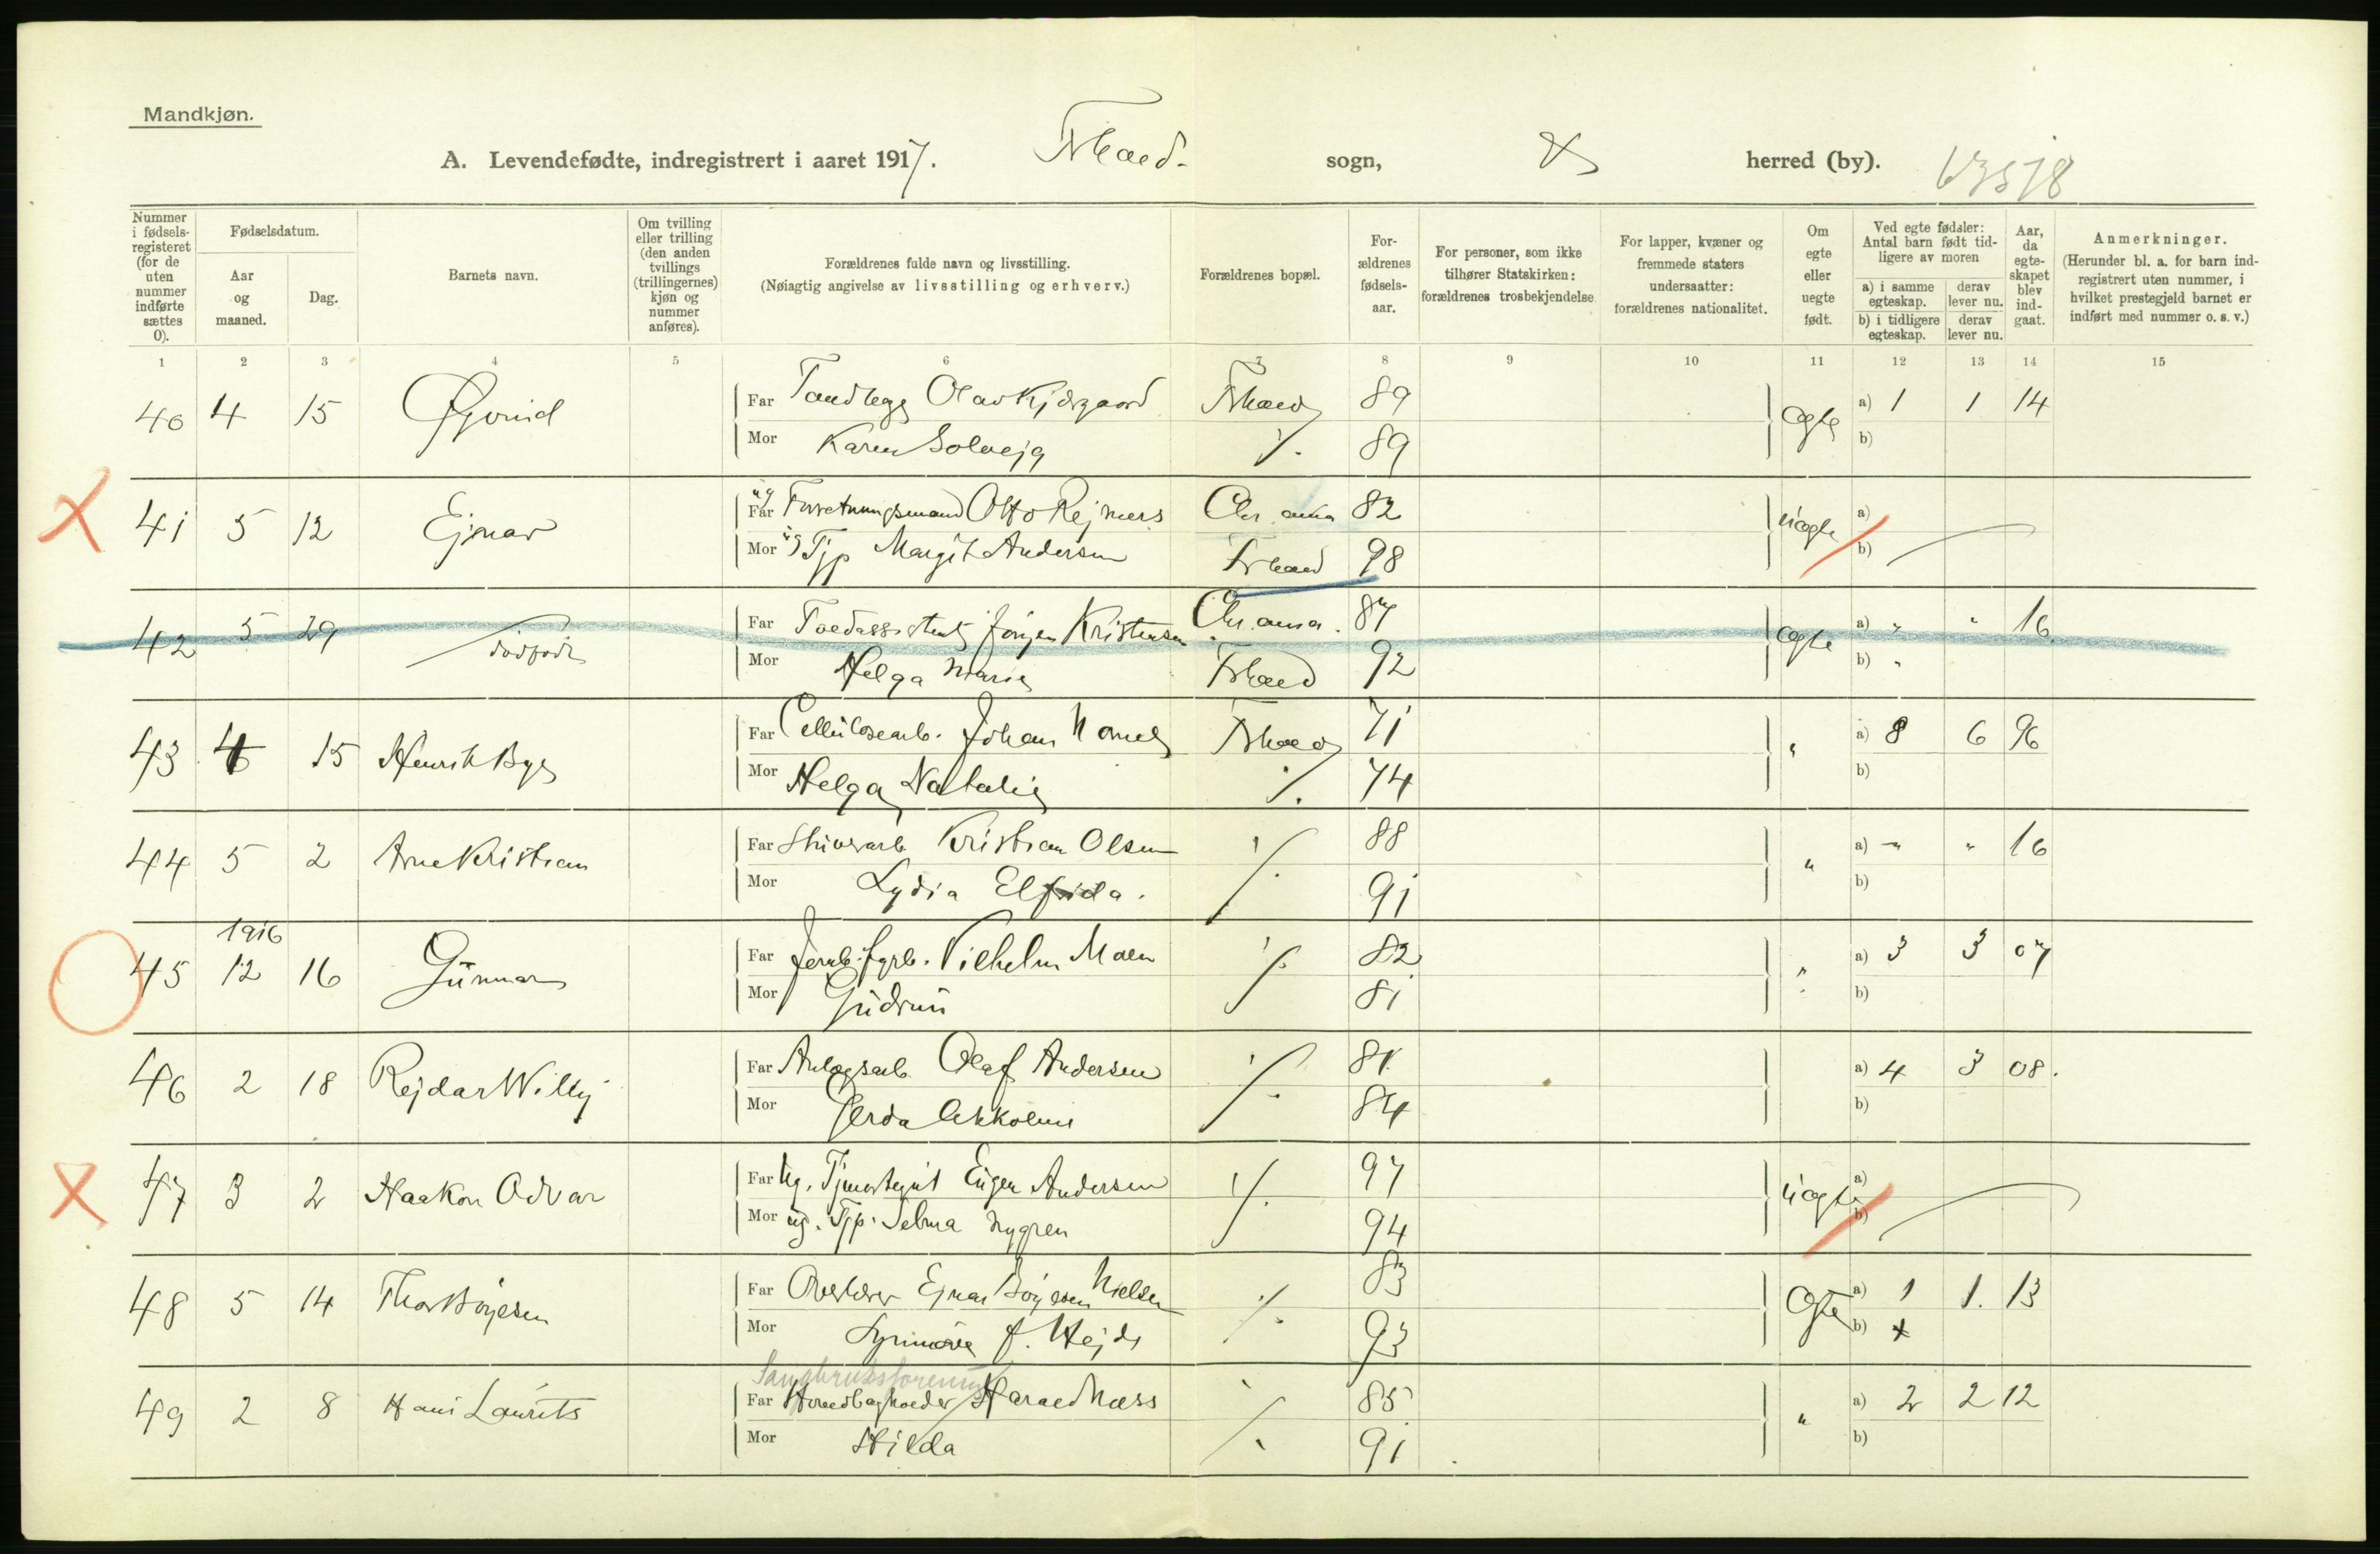 Mandkjøn.
A. Levendefødte, indregistrert i aaret 1917. Frhald. sogn, herred (by).
Nummer i fødsels-registeret (for de uten nummer indførte sættes 0).
Fødselsdatum.
Aar og maaned.
Dag.
Barnets navn.
Om tvilling eller trilling (den anden tvillings (trillingernes) kjøn og nummer anføres).
Forældrenes fulde navn og livsstilling.
(Nøiagtig angivelse av livsstilling og erhverv.)
Forældrenes bopæl.
For-ældrenes fødsels-aar.
For personer, som ikke tilhører Statskirken: forældrenes trosbekjendelse
For lapper, kvæner og fremmede staters undersaatter: forældrenes nationalitet.
Om egte eller uegte født.
Ved egte fødsler: Antal barn født tid-ligere av moren
a) i samme egteskap. derav lever nu.
b) i tidligere egteskap. derav lever nu.
Aar, da egte-skapet blev ind-gaat.
Anmerkninger.
(Herunder bl. a. for barn ind-registrert uten nummer, i hvilket prestegjeld barnet er indført med nummer o. s. v.)
1 2 3 4 5 6 7 8 9 10 11 12 13 14 15
40 4 15 Øjvind Far Tandlæge Olav Kjærgaard Frhald 89 Ægte a) 1 1 14
Mor Karen Solvejg ./. 89 b)
41 5 12 Ejnar Far ug Forretningsmand Otto Rejmers Chr.ania 82 Uægte a)
Mor ug Tjp Margit Andersen Frhald 98 b)
42 5 29 dødfødt Far Jørgen Kristensen Chr.ania. 87 Ægte a) " " 16
Mor Helga Marie Frhald 92 b) "
43 4 15 Henrik Bye Far Cellulosearb. Johan Frhald 71 " a) 8 6 96
Mor Helga Natalie ./. 74 b)
44 5 2 Arne Kristian Far Kristian Olsen ./. 88 " a) " " 16
Mor Lydia Elfrida. 91 b)
1916
45 12 16 Gunnar Far Vilhelm Moen ./. 82 " a) 3 3 07
Mor Gudrun 81 b)
46 2 18 Rejdar Willy Far Anlægsarb. Olaf Andersen ./. 81. a) 4 3 08.
Mor Gerda 84 b)
47 3 2 Haakon Odvar Far Ug. Eugen Andersen ./. 97 Uægte a)
Mor ug. Tjp. Selma Nygren 94 b)
48 5 14 Thor Børjesen Far Overlærer Ejnar Børjesen Nielsen ./. 83 Ægte a) 1 1. 13
Mor f. Hejde 93 b)
49 2 8 Hans Laurits Far Harald Næss ./. 85 " a) 2 2 12
Mor Hilda 91 b)